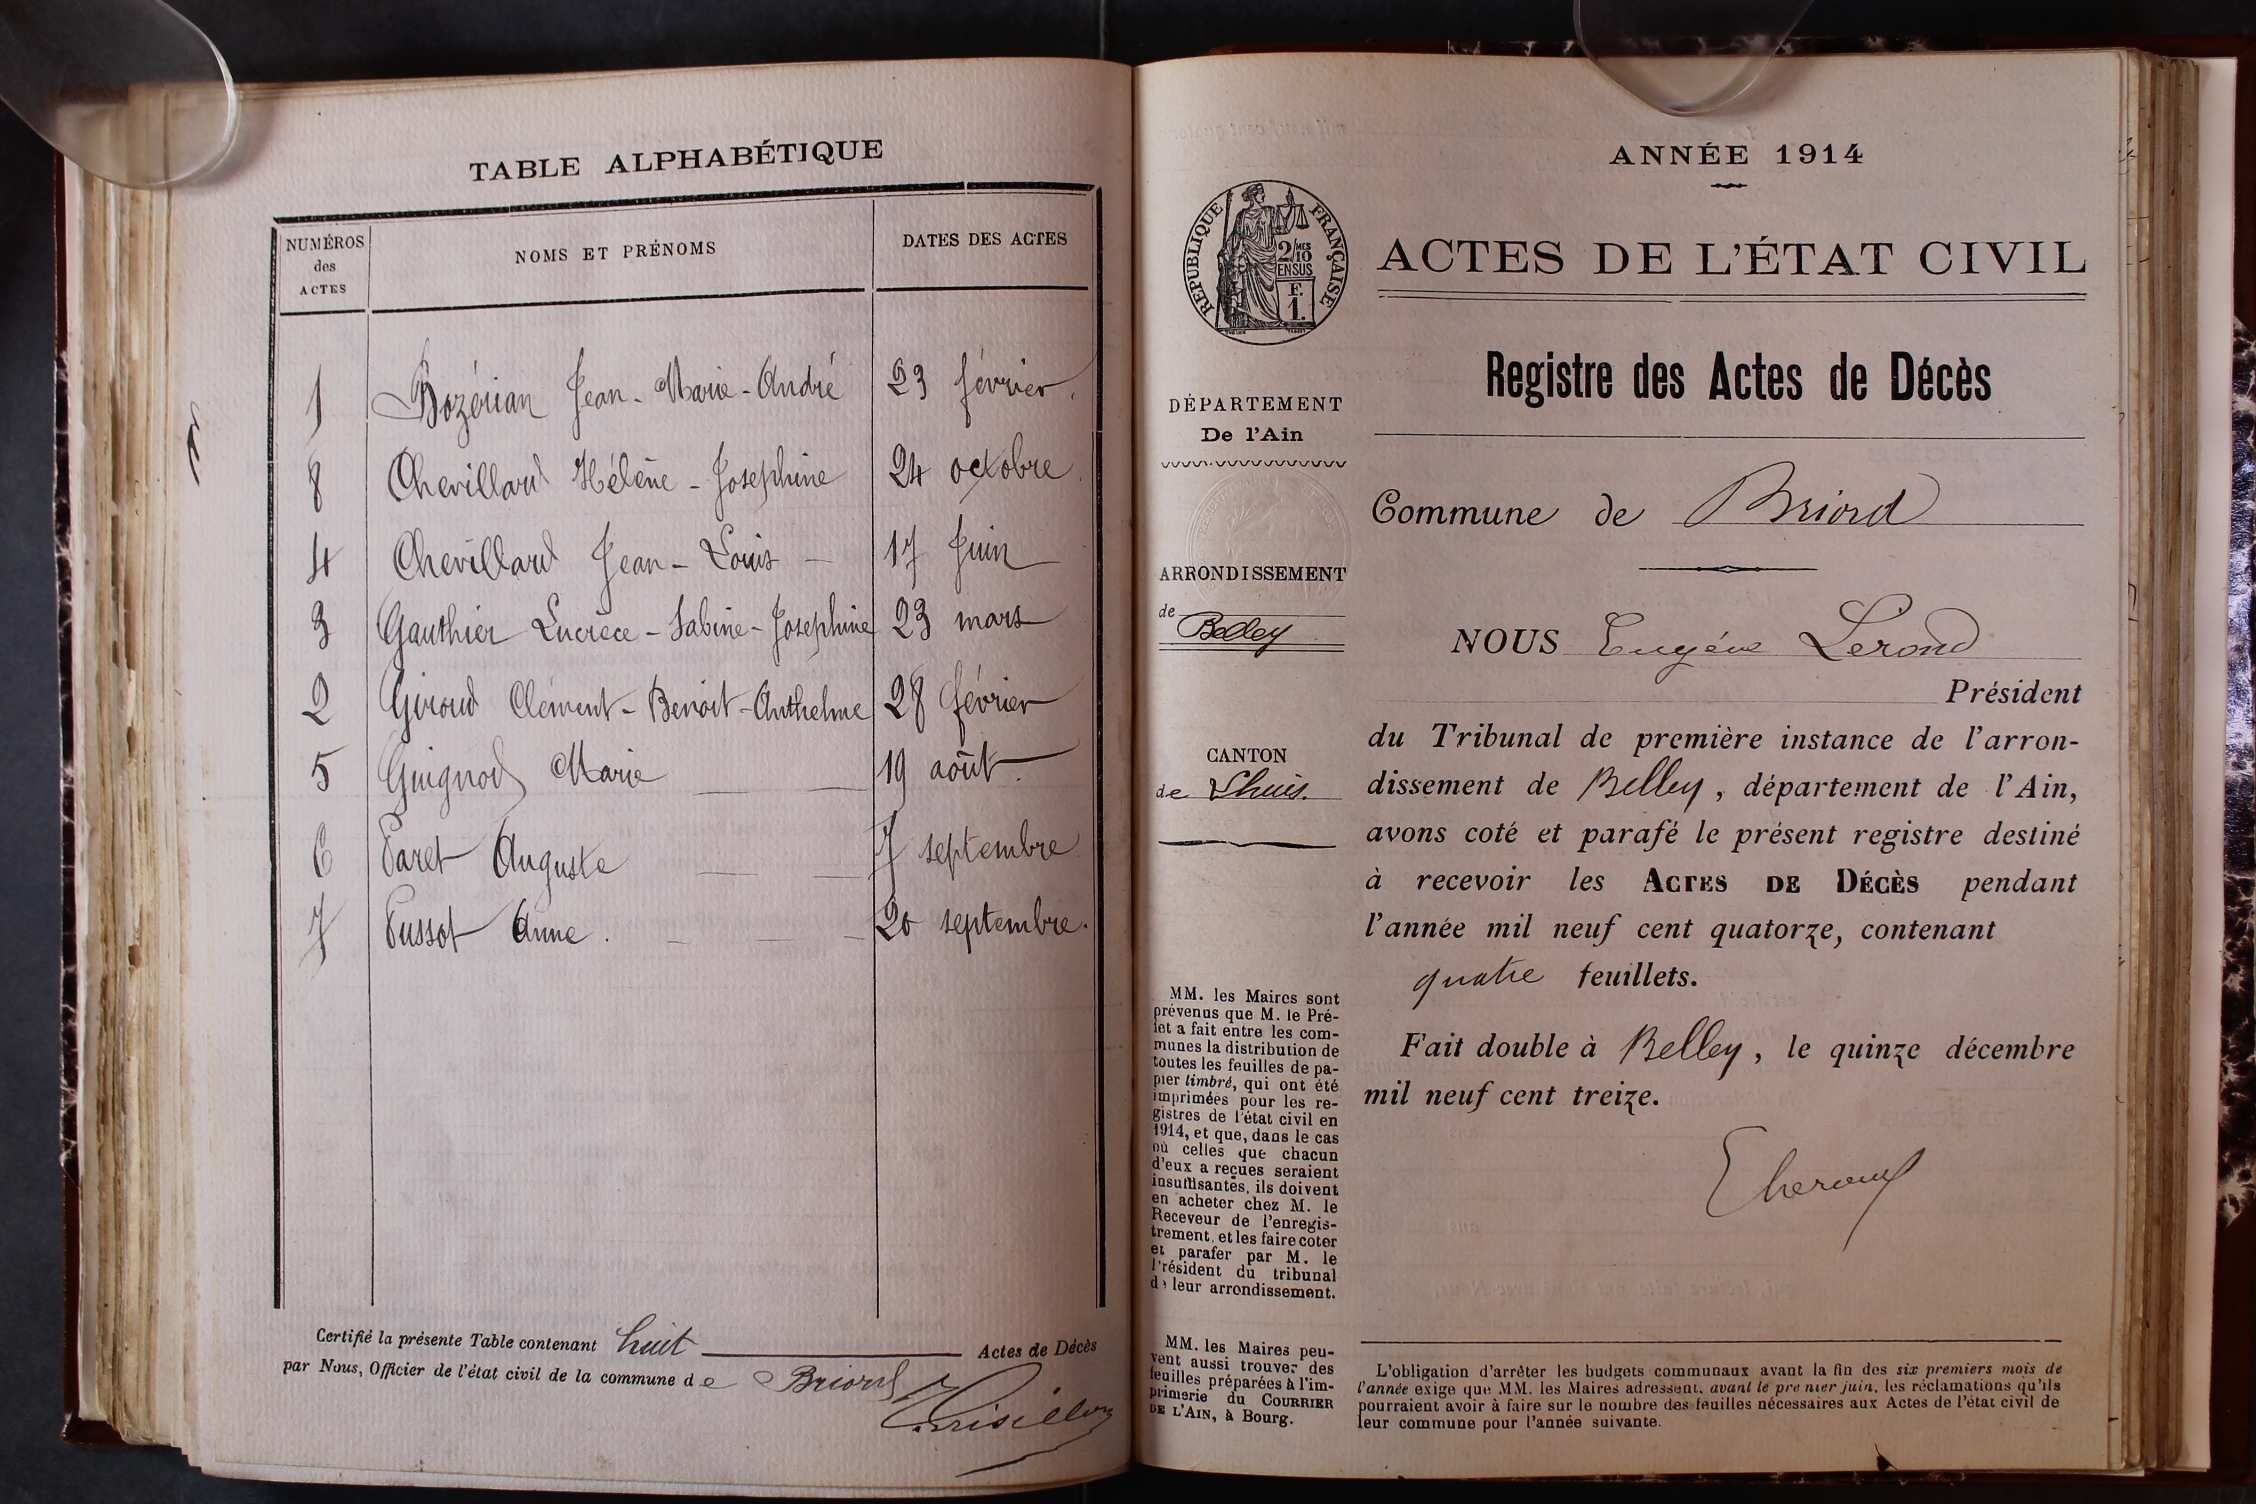 TABLE ALPHABÉTIQUE
NUMÉROS des ACTES
NOMS ET PRÉNOMS
DATES DES ACTES
1 Bozérian Jean-Marie-André 23 février.
8 Chevillard Hélène-Josephine 24 octobre.
4 Chevillard Jean-Louis — 17 Juin
3 Gauthier Lucrèce-Sabine-Josephine 23 mars
2 Giroud Clément-Benoit-Anthelme 28 février
5 Guignod Marie — — 19 août.
6 Paret Auguste — — 7 septembre
7 Pussot Anne. — — — 20 septembre.
Certifié la présente Table contenant huit Actes de Décès
par Nous, Officier de l'état civil de la commune de Briord
ANNÉE 1914
RÉPUBLIQUE FRANÇAISE
2/10 MES
EN SUS
F.
1.
ACTES DE L'ÉTAT CIVIL
Registre des Actes de Décès
DÉPARTEMENT
De l'Ain
Commune de Briord
ARRONDISSEMENT
de Belley
NOUS Eugène Lerond
Président
du Tribunal de première instance de l'arron-
dissement de Belley, département de l'Ain,
avons coté et parafé le présent registre destiné
à recevoir les ACTES DE DÉCÈS pendant
l'année mil neuf cent quatorze, contenant
quatre feuillets.
Fait double à Belley, le quinze décembre
mil neuf cent treize.
CANTON
de Lhuis.
MM. les Maires sont
prévenus que M. le Pré-
fet a fait entre les com-
munes la distribution de
toutes les feuilles de pa-
pier timbré, qui ont été
imprimées pour les re-
gistres de l'état civil en
1914, et que, dans le cas
où celles que chacun
d'eux a reçues seraient
insuffisantes, ils doivent
en acheter chez M. le
Receveur de l'enregis-
trement, et les faire coter
et parafer par M. le
Président du tribunal
de leur arrondissement.
MM. les Maires peu-
vent aussi trouver des
feuilles préparées à l'im-
primerie du COURRIER
DE L'AIN, à Bourg.
L'obligation d'arrêter les budgets communaux avant la fin des six premiers mois de
l'année exige que MM. les Maires adressent, avant le premier juin, les réclamations qu'ils
pourraient avoir à faire sur le nombre des feuilles nécessaires aux Actes de l'état civil de
leur commune pour l'année suivante.